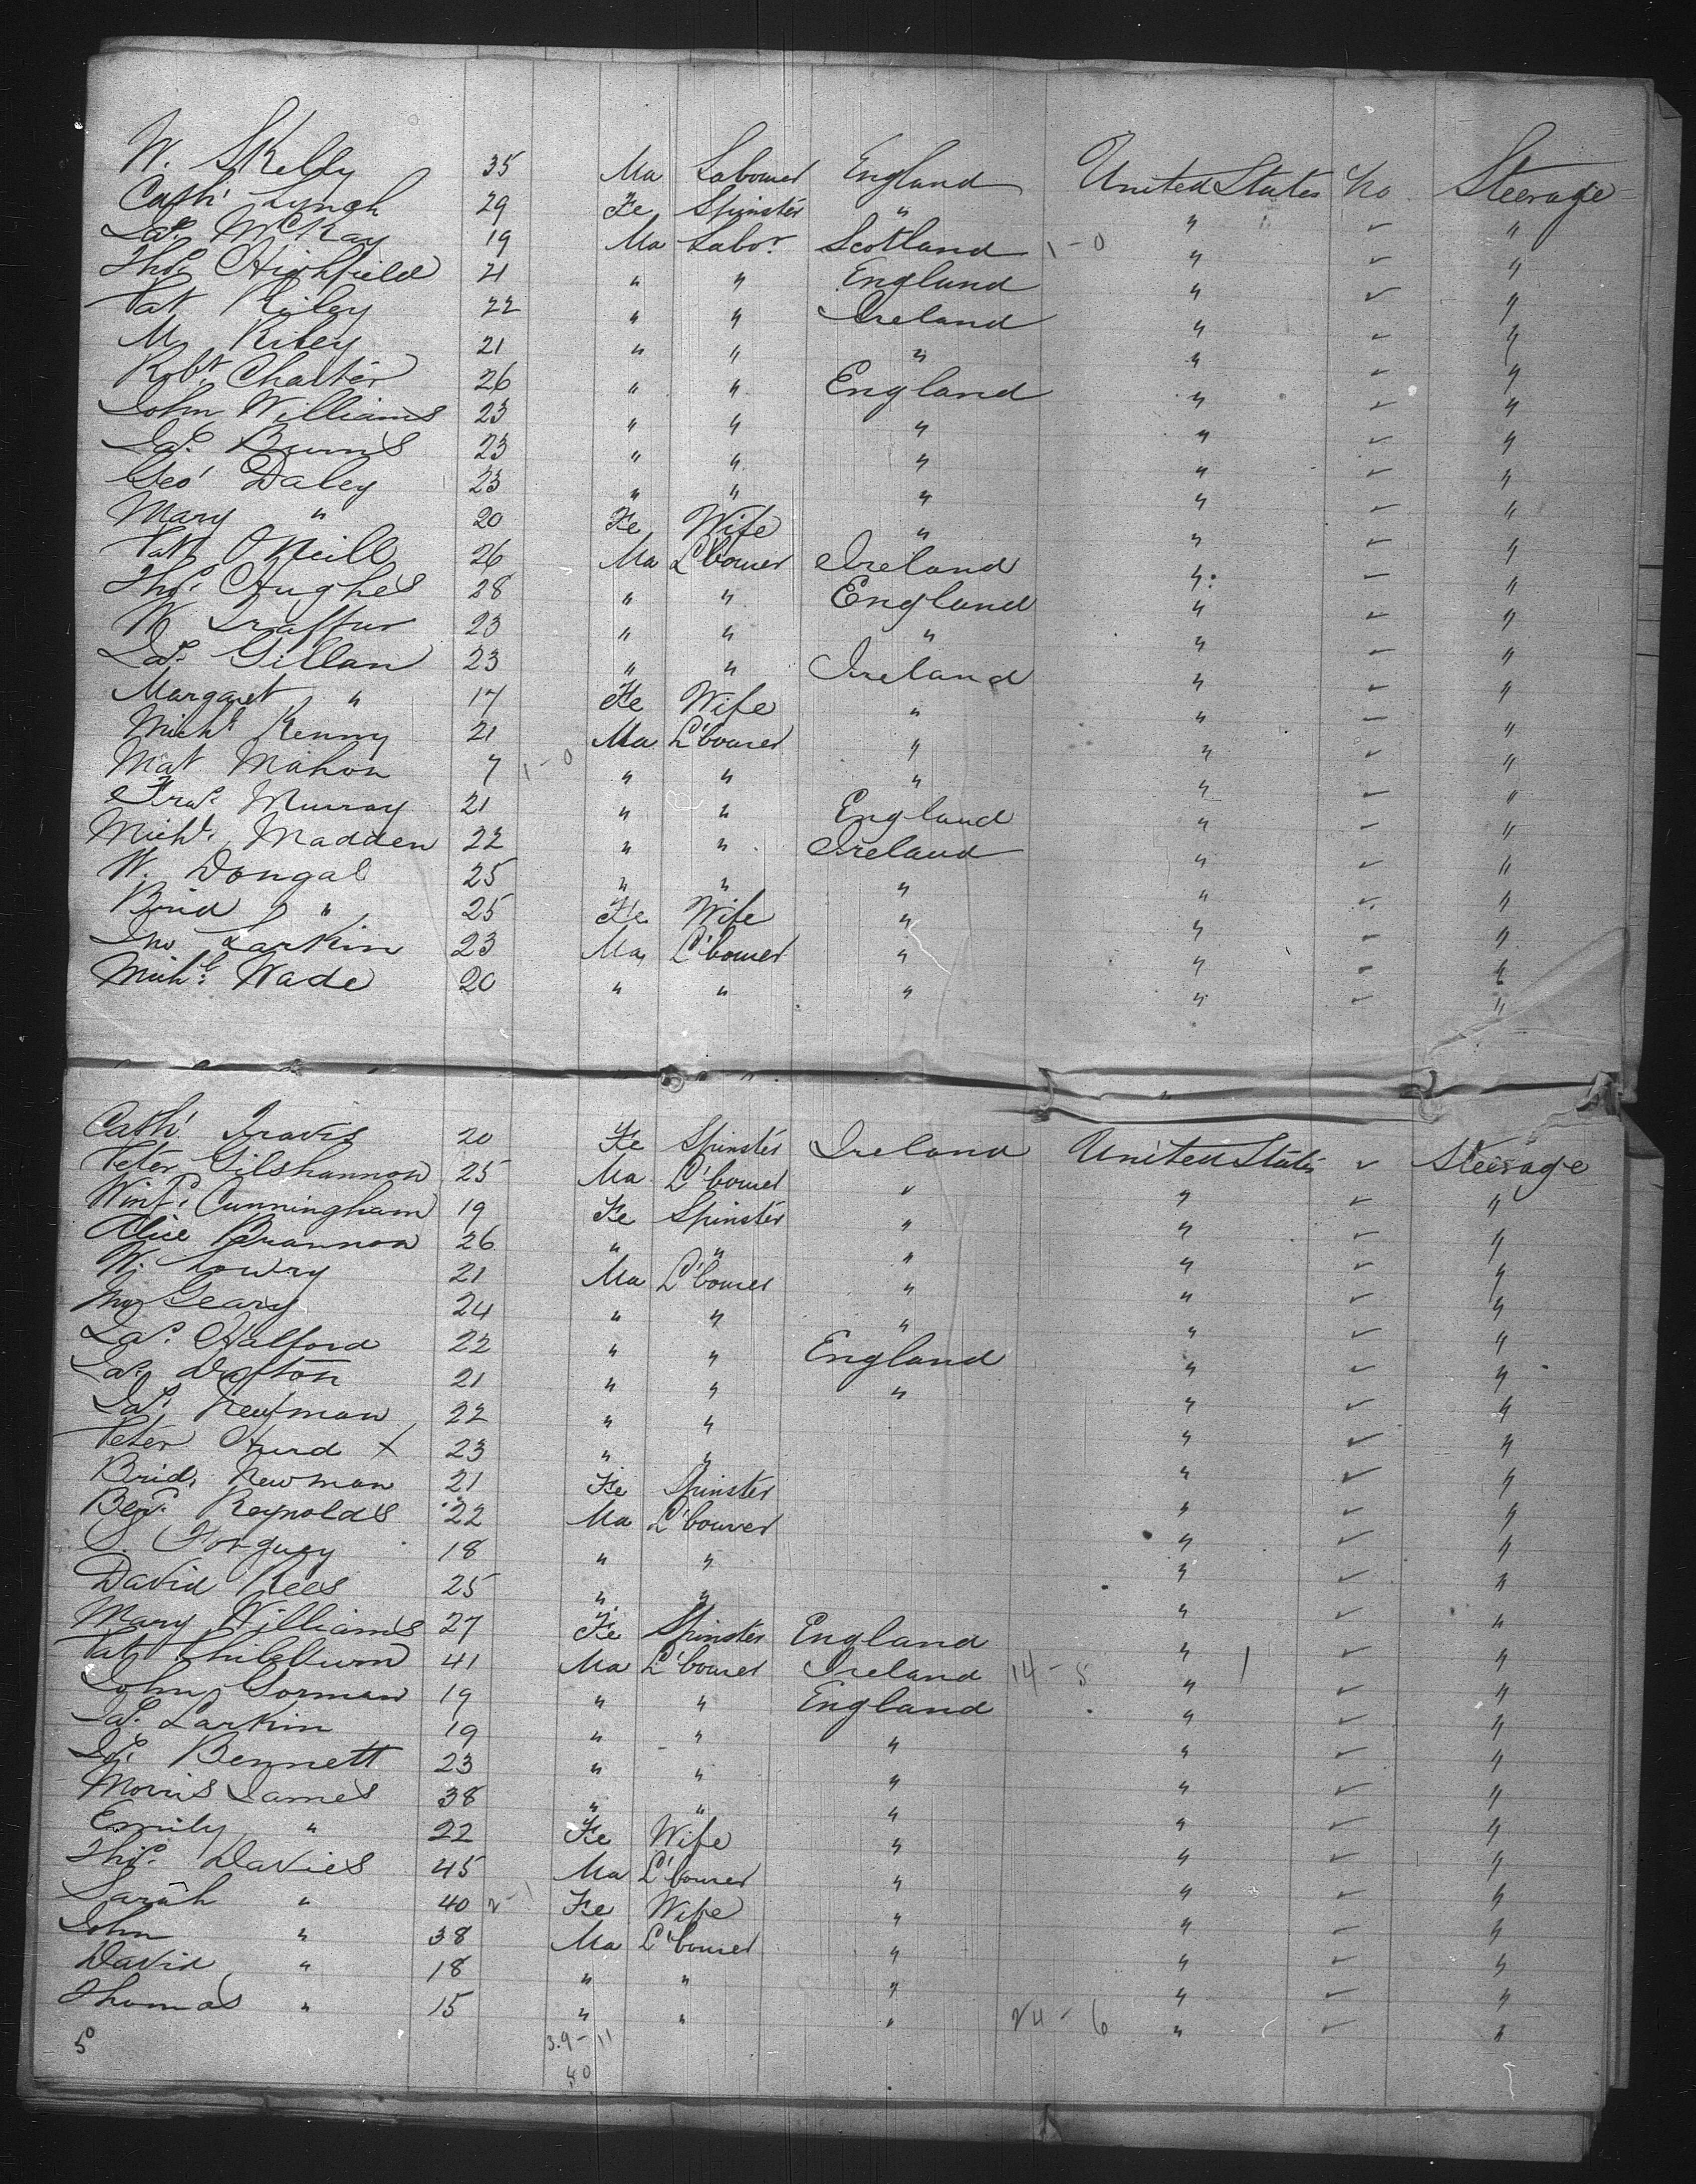 W. Skelly 35 Ma Labourer England United States No Steerage
Cath' Lynch 29 Fe Spinster " " ✓ "
Jas. McKay 19 Ma Labor. Scotland 1-0 " ✓ "
Thos. Highfield 21 " " England " ✓ "
Pat Riley 22 " " Ireland " ✓ "
M Riley 21 " " " " ✓ "
Robt. Charter 26 " " England " ✓ "
John Williams 23 " " " " ✓ "
Jas. Burns 23 " " " " ✓ "
Geo' Daley 23 " " " " ✓ "
Mary " 20 Fe Wife " " ✓ "
Patk O'Neill 26 Ma L'bourer Ireland " ✓ "
Thos. Hughes 28 " " England " ✓ "
W 23 " " " " ✓ "
Jas. Gillan 23 " " Ireland " ✓ "
Margaret " 17 Fe Wife " " ✓ "
Michl Kenny 21 Ma L'bourer " " ✓ "
Mat Mahon 7 1-0 " " " " ✓ "
Fras. Murray 21 " " England " ✓ "
Michl. Madden 22 " " Ireland " ✓ "
W. Dongal 25 " " " " ✓ "
Brid " 25 Fe Wife " " ✓ "
Jno Larkin 23 Ma L'bourer " " ✓ "
Michl. Wade 20 " " " " ✓ "
Cath' Travis 20 Fe Spinster Ireland United States ✓ Steerage
Peter Gilshannon 25 Ma L'bourer " " ✓ "
Winf. Cunningham 19 Fe Spinster " " ✓ "
Alice Brannon 26 " " " " ✓ "
W. Lowry 21 Ma L'bourer " " ✓ "
Geary 24 " " " " ✓ "
Jas. Halford 22 " " England " ✓ "
Jas. 21 " " " " ✓ "
Jas. Newman 22 " " " ✓ "
Peter Hurd x 23 " " " ✓ "
Brid. Newman 21 Fe Spinster " ✓ "
Benj. Reynolds 22 Ma L'bourer " ✓ "
18 " " " ✓ "
David Rees 25 " " " ✓ "
Mary Williams 27 Fe Spinster England " ✓ "
Pat 41 Ma L'bourer Ireland 14-5 " 1 ✓ "
John Gorman 19 " " England " ✓ "
Jas. Larkin 19 " " " " ✓ "
Bennett 23 " " " " ✓ "
Morris James 38 " " " " ✓ "
Emily " 22 Fe Wife " " ✓ "
Thos. Davies 45 Ma L'bourer " " ✓ "
Sarah " 40 2-1 Fe Wife " " ✓ "
John " 38 Ma L'bourer " " ✓ "
David " 18 " " " " ✓ "
Thomas " 15 " " " 24-6 " ✓ "
50 39-11
40